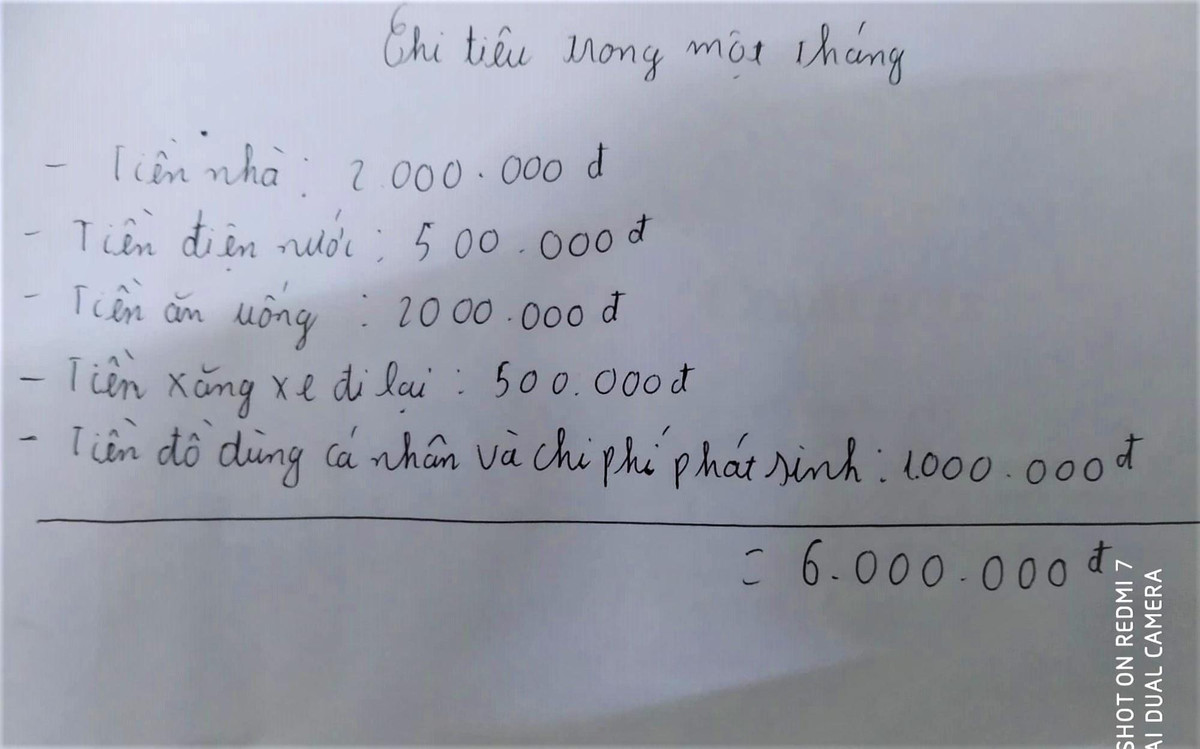 Chi tiêu trong một tháng
- Tiền nhà : 2.000.000 đ
- Tiền điện nước : 500.000 đ
- Tiền ăn uống : 2000.000 đ
- Tiền xăng xe đi lại : 500.000 đ
- Tiền đồ dùng cá nhân và chi phí phát sinh : 1.000.000 đ
= 6.000.000 đ
SHOT ON REDMI 7
AI DUAL CAMERA